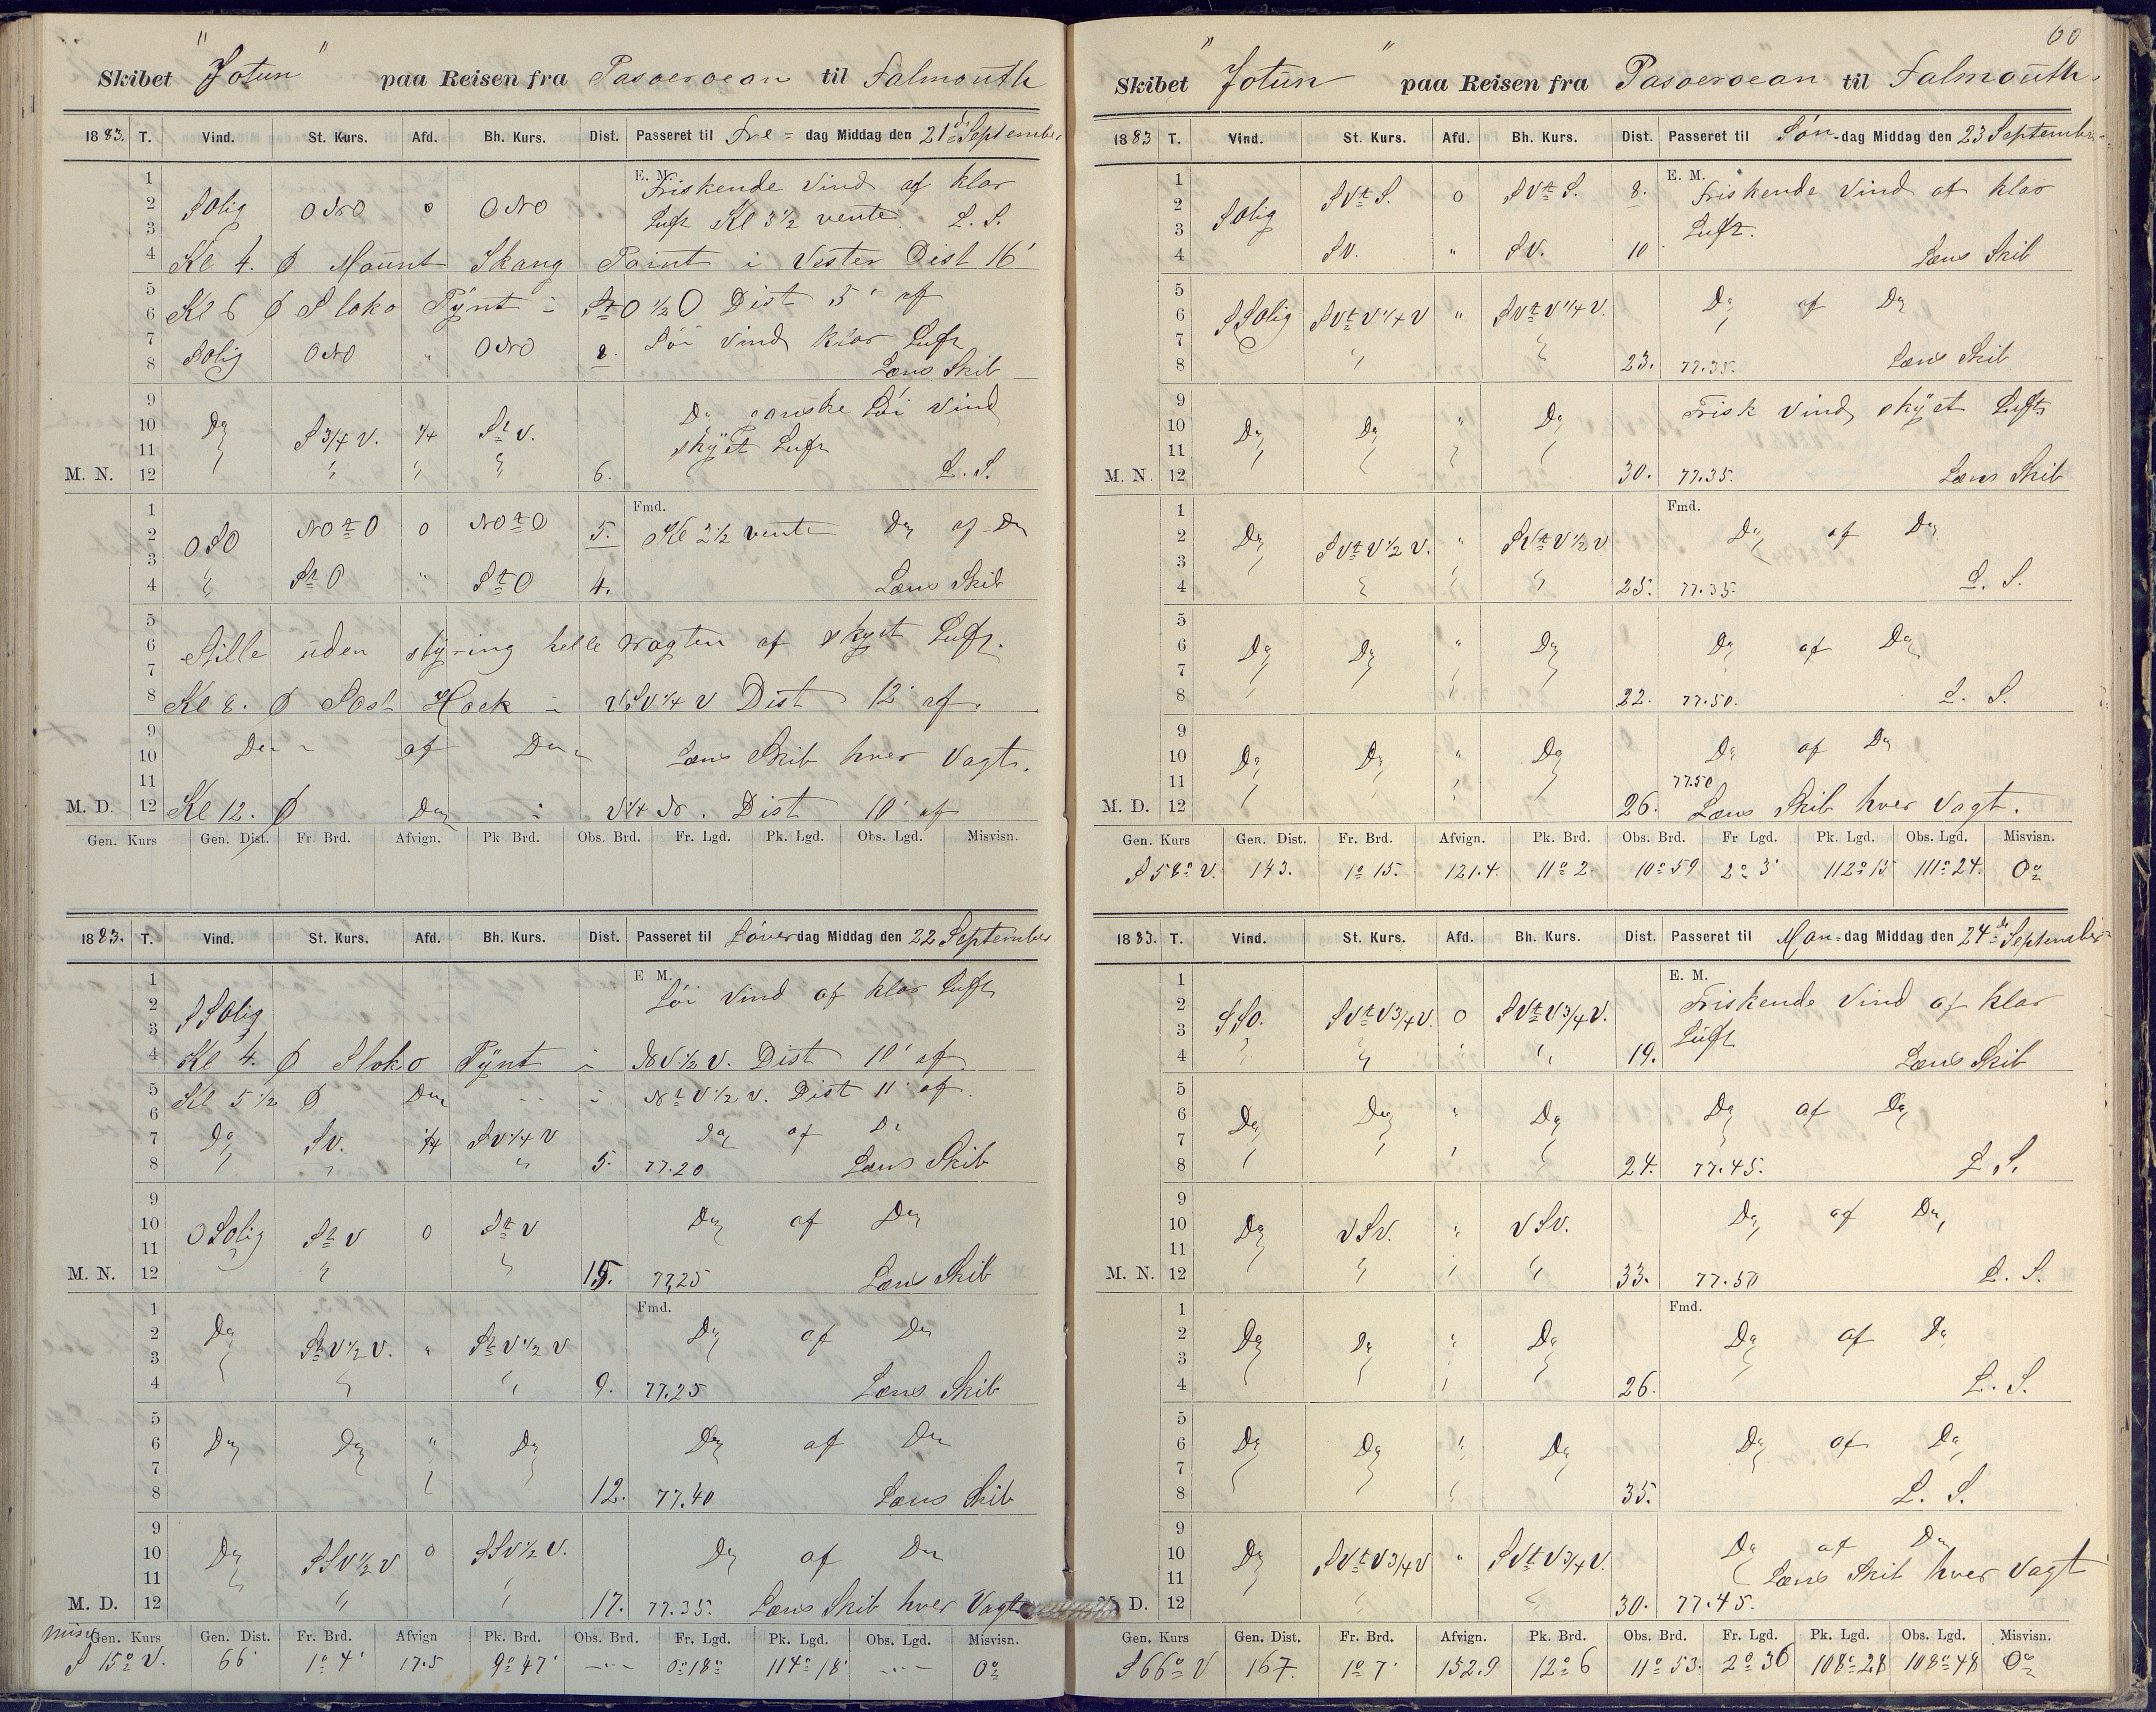 Skibet "Jotun" paa Reisen fra Pasoeroean til Falmouth
1883. T. Vind. St. Kurs. Afd. Bh. Kurs. Dist. Passeret til Fre=dag Middag den 21de September
E. M.
1 Friskende Vind af klar
2 SOlig ONO 0 ONO
3 Luft Kl 3½ vente L. S.
4 Kl 4. Ø Mount Skang Point i Vester Dist 16'
5
6 Kl 6 Ø Sloko Pÿnt i StO ½ O Dist 5' af
7 SOlig ONO " ONO 2. Løi Vind klar Luft
8 Læns Skib
9 Do ganske Løi Vind
10 Do S 3/4 V. 1/4 St V.
11 skÿet Luft
M. N. 12 " " " 6. L. S.
Fmd.
1
2 OSO NOtO 0 NOtO 5. Kl 2½ vente Do af Do
3
4 " StO " StO 4. Læns Skib
5
6 Stille uden stÿring helle vagten af skyet Luft.
7
8 Kl 8. Ø Hoek i VSV 1/4 V Dist 12' af.
9
10 Do af Do Læns Skib hver Vagt.
11
M. D. 12 Kl 12. Ø Do i Dist 10' af
Gen. Kurs Gen. Dist. Fr. Brd. Afvign. Pk Brd. Obs. Brd. Fr. Lgd. Pk. Lgd. Obs. Lgd. Misvisn.
1883. T. Vind. St. Kurs. Afd. Bh. Kurs. Dist. Passeret til Løverdag Middag den 22 September
E M.
1 Løi Vind af klar Luft
2 SSOlig
3
4 Kl 4. Ø Sloko Pÿnt i NV ½ V. Dist 10' af
5 Kl 5½ Ø Do i NtV ½ V. Dist 11' af.
6
7 Do SV. 1/4 SV 1/4 V Do af Do
8 " " " 5. 77.20 Læns Skib
9
10 OSOlig StV 0 StV Do af Do
11
M. N. 12 " " 15. 77,25 Læns Skib
Fmd.
1
2 Do StV ½ V. " StV ½ V Do af Do
3
4 " " 9. 77.25 Læns Skib
5
6 Do Do " Do Do af Do
7
8 12. 77.40 Læns Skib
9
10 Do SSV ½ V 0 SSV ½ V. Do af Do
11
M. D. 12 " " 17. 77.35. Læns Skib hver Vagt
misv
Gen. Kurs Gen. Dist. Fr. Brd. Afvign Pk. Brd. Obs. Brd. Fr. Lgd. Pk. Lgd. Obs. Lgd. Misvisn.
S 15° V. 66' 1° 4' 17.5 9° 47' — 0° 18' 114° 18' — 0°
60
Skibet "Jotun" paa Reisen fra Pasoeroean til Falmouth.
1883 T. Vind. St. Kurs. Afd. Bh. Kurs. Dist. Passeret til Søn-dag Middag den 23 September
E. M.
1 SVtS. 0 SVtS. 8. Friskende Vind af klar
2 SOlig
3 Luft.
4 SV. " SV. 10 Læns Skib
5
6 SSOlig SVtV 1/4 V " SVtV 1/4 V. Do af Do
7
8 " " 23. 77.35. Læns Skib
9 Frisk Vind skÿet Luft
10 Do Do " Do
11
M. N. 12 " " " " 30. 77.35. Læns Skib
Fmd.
1
2 Do SVtV ½ V. " SVtV ½ V Do af Do
3
4 " " " 25. 77.35. L. S.
5
6 Do Do " Do Do af Do
7
8 " " 22. 77.50. L. S.
9
10 Do Do " Do Do af Do
11 77.50
M. D. 12 " " " " 26. Læns Skib hver Vagt.
Gen. Kurs Gen. Dist. Fr. Brd. Afvign. Pk. Brd. Obs. Brd. Fr Lgd. Pk. Lgd. Obs. Lgd. Misvisn.
S 58° V. 143. 1° 15. 121.4. 11° 2. 10° 59 2° 3' 112° 15 111° 24. 0°
1883. T. Vind. St. Kurs. Afd. Bh. Kurs. Dist. Passeret til Man=dag Middag den 24de September
E. M.
1 Friskende Vind af klar
2 SSO. SVtV 3/4 V. 0 SVtV 3/4 V.
3 Luft
4 " " " " 19. Læns Skib
5
6 Do Do " Do Do af Do
7
8 " " " " 24. 77.45. L. S.
9
10 Do VSV. " VSV. Do af Do
11
M. N. 12 " " " 33. 77.50 L. S.
Fmd.
1
2 Do Do " Do Do af Do
3
4 " 26. L. S.
5
6 Do Do " Do Do af Do
7
8 " 35. L. S.
9
10 Do SVtV 3/4 V " SVtV 3/4 V. Do af Do
11 Læns Skib hver Vagt
D. 12 " " " 30. 77.45.
Gen. Kurs Gen. Dist. Fr. Brd. Afvign. Pk. Brd. Obs. Brd. Fr. Lgd. Pk. Lgd. Obs. Lgd. Misvisn.
S 66° V 167. 1° 7' 152.9 12° 6 11° 53. 2° 36 108° 28 108° 48 0°